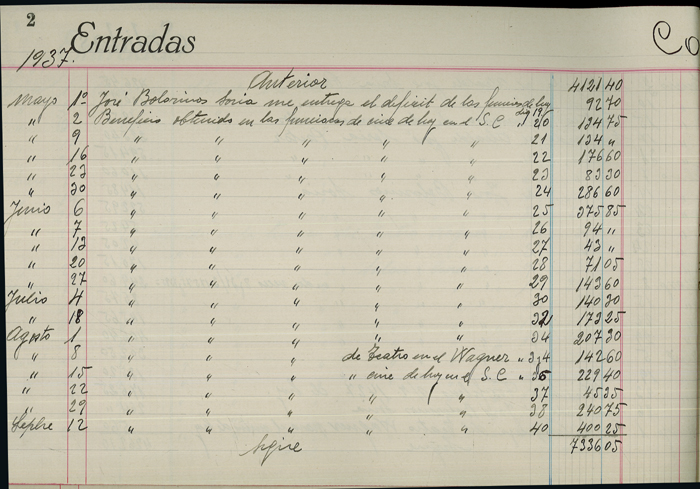 2
Entradas
Co
1937.
Anterior 4131 40
Mayo 1º José Bolarinos Soria me entrega el deficit de las funcios de hoy 92 70
" 2 Beneficio obtenido en las funciones de cine de hoy en el S.C. 20 134 75
" 9 " " " " " 21 134 "
" 16 " " " " " 22 176 60
" 23 " " " " " 23 83 30
" 30 " " " " " 24 286 60
Junio 6 " " " " " 25 375 85
" 7 " " " " " 26 94 "
" 13 " " " " " 27 43 "
" 20 " " " " " 28 71 05
" 27 " " " " " 29 143 60
Julio 4 " " " " " 30 140 30
" 18 " " " " " 32 173 25
Agosto 1 " " " " " 34 207 30
" 8 " " " de Teatro en el Wagner " 34 142 60
" 15 " " " " cine de hoy en el S.C " 36 229 40
" 22 " " " " " 37 45 35
" 29 " " " " " 38 240 75
Sepbre 12 " " " " " 40 400 25
Sigue 7336 05